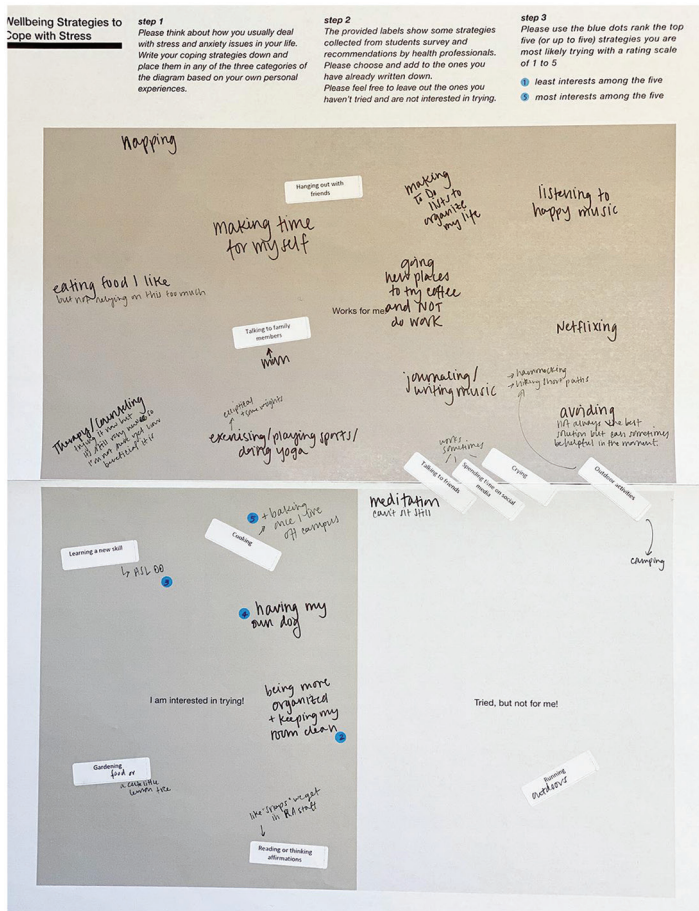 Wellbeing Strategies to
Cope with Stress
step 1
Please think about how you usually deal
with stress and anxiety issues in your life.
Write your coping strategies down and
place them in any of the three categories of
the diagram based on your own personal
experiences.
step 2
The provided labels show some strategies
collected from students survey and
recommendations by health professionals.
Please choose and add to the ones you
have already written down.
Please feel free to leave out the ones you
haven't tried and are not interested in trying.
step 3
Please use the blue dots rank the top
five (or up to five) strategies you are
most likely trying with a rating scale
of 1 to 5
1 least interests among the five
5 most interests among the five
napping
Hanging out with
friends
making
To Do
lists to
organize
my life
listening to
happy music
making time
for myself
eating food I like
but not relying on this too much
going
new places
to try coffee
and NOT
do work
Works for me!
Talking to family
members
mom
Netflixing
journaling/
writing music
→ hammocking
→ hiking short paths
Therapy/counseling
trying it now but
it's still very new so
I'm not sure yet how
beneficial it is
elliptical
+ some weights
exercising/playing sports/
doing yoga
avoiding
not always the best
solution but can sometimes
be helpful in the moment.
works
sometimes
Talking to friends
Spending time on social
media
Crying
Outdoor activities
camping
meditation
can't sit still
5 + baking
once I live
off campus
Cooking
Learning a new skill
↳ ASL
3
4 having my
own dog
I am interested in trying!
being more
organized
+ keeping my
room clean
2
Tried, but not for me!
Gardening
food or
a cute little
lemon tree
Running
outdoors
like "snaps" we get
in RA staff
Reading or thinking
affirmations